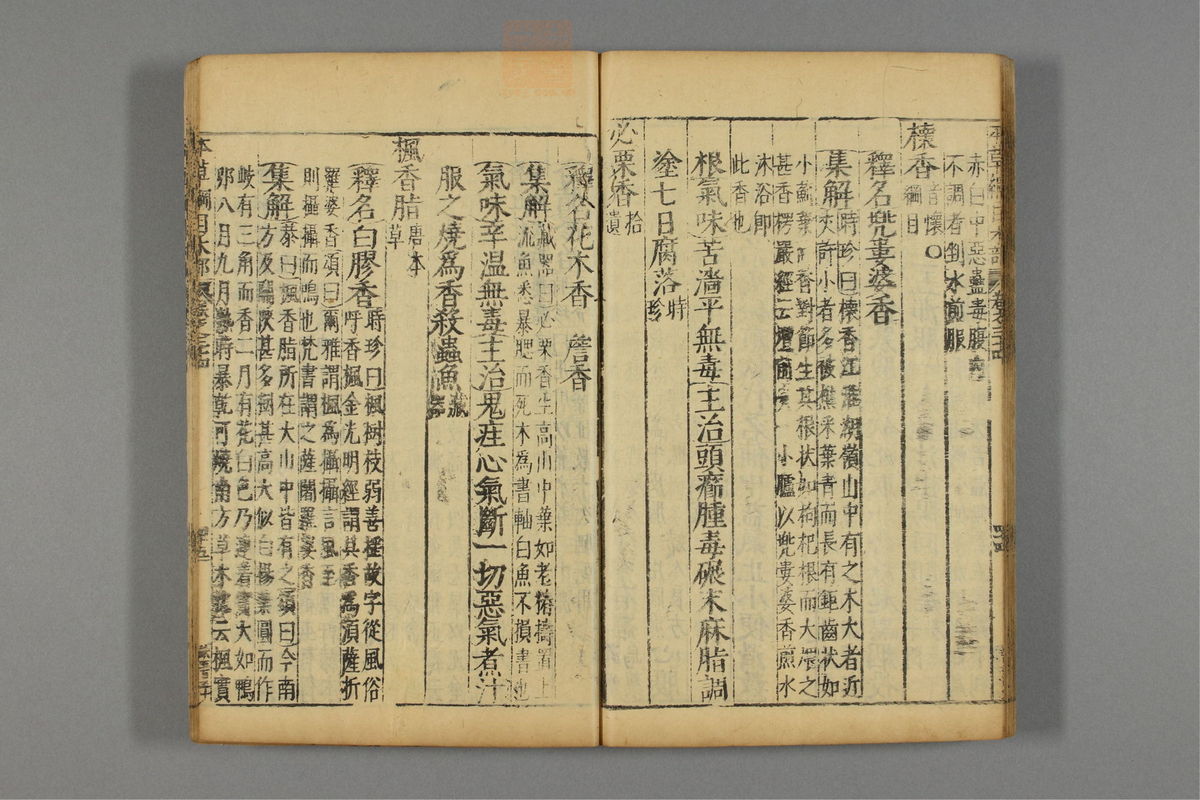 赤白中惡蠱毒腹
不調者剉水煎服
櫰香音懷綱目〇
釋名兜婁婆香
集解時珍曰櫰香江淮湖嶺山中有之木大者近
丈許小者多被樵采葉青而長有鋸齒狀如
小薊葉而香對節生其根狀如枸杞根而大煨之
甚香楞嚴經云壇前 小爐以兜婁婆香煎水
沐浴即此香也
根氣味苦濇平無毒主治頭癤腫毒碾末麻脂調
塗七日腐落時珍
必栗香拾遺
釋名花木香 詹香
集解藏器曰必栗香生高山中葉如老椿擣置上
流魚悉暴腮而死木為書軸白魚不損書也
氣味辛溫無毒主治鬼疰心氣斷一切惡氣煮汁
服之燒為香殺蟲魚藏器
楓香脂唐本草
釋名白膠香時珍曰楓樹枝弱善搖故字從風俗
呼香楓金光明經謂其香為須薩折
羅婆香頌曰爾雅謂楓為欇欇言風至
則欇欇而鳴也梵書謂之薩闍羅婆香
集解恭曰楓香脂所在大山中皆有之頌曰今南
方及關陝甚多樹甚高大似白楊葉圓而作
岐有三角而香二月有花白色乃連着實大如鴨
卵八月九月熟時暴乾可燒南方草木狀云楓實
本草綱目木部